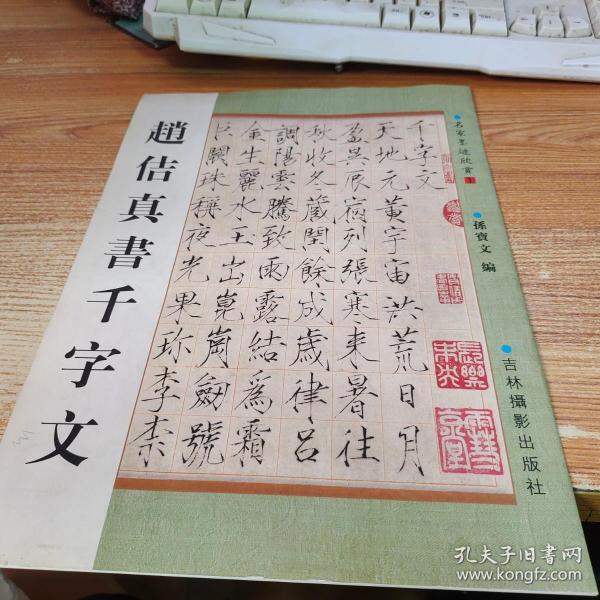 趙佶真書千字文
千字文
天地元黃宇宙洪荒日月
盈昃辰宿列張寒来暑往
秋收冬藏閏餘成歲律呂
調陽雲騰致雨露結為霜
金生麗水玉出崑崗劒號
巨闕珠稱夜光果珍李柰
名家墨迹欣賞
孫寶文 编
吉林攝影出版社
孔夫子旧书网
www.kongfz.com